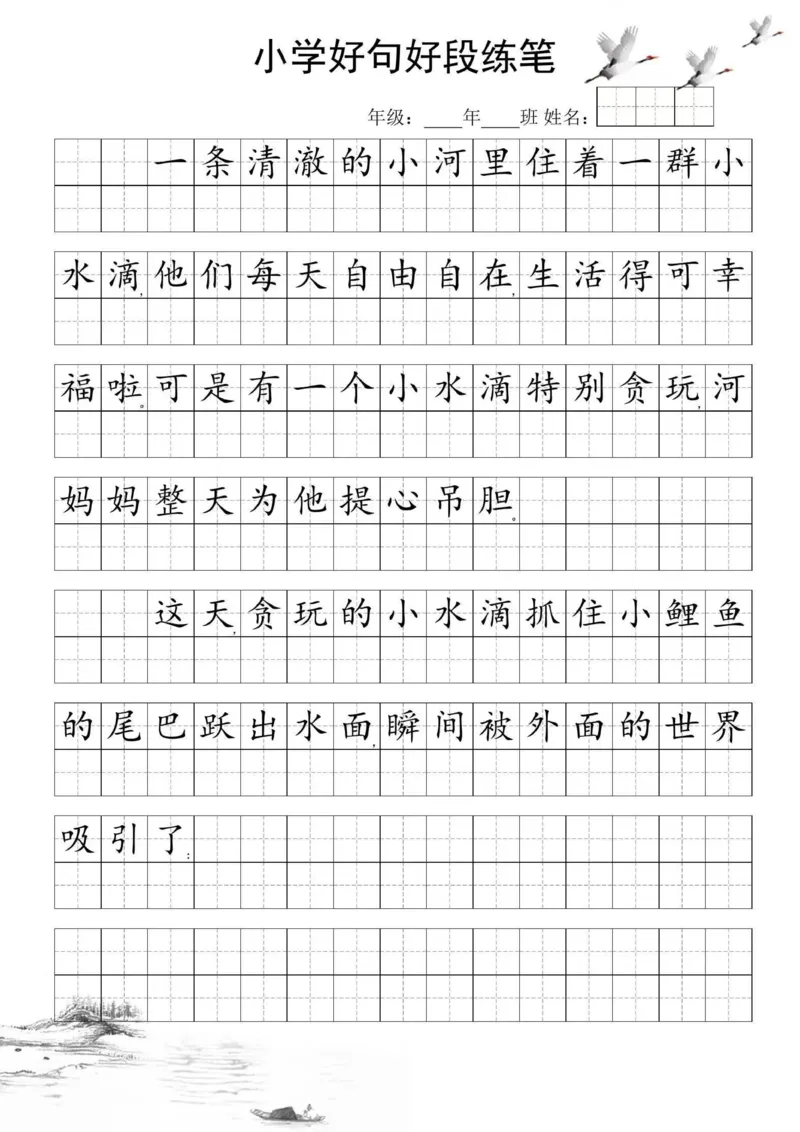 小学好句好段练笔
年级：____年____班 姓名：
一条清澈的小河里住着一群小
水滴，他们每天自由自在，生活得可幸
福啦。可是有一个小水滴特别贪玩，河
妈妈整天为他提心吊胆。
这天，贪玩的小水滴抓住小鲤鱼
的尾巴跃出水面，瞬间被外面的世界
吸引了：